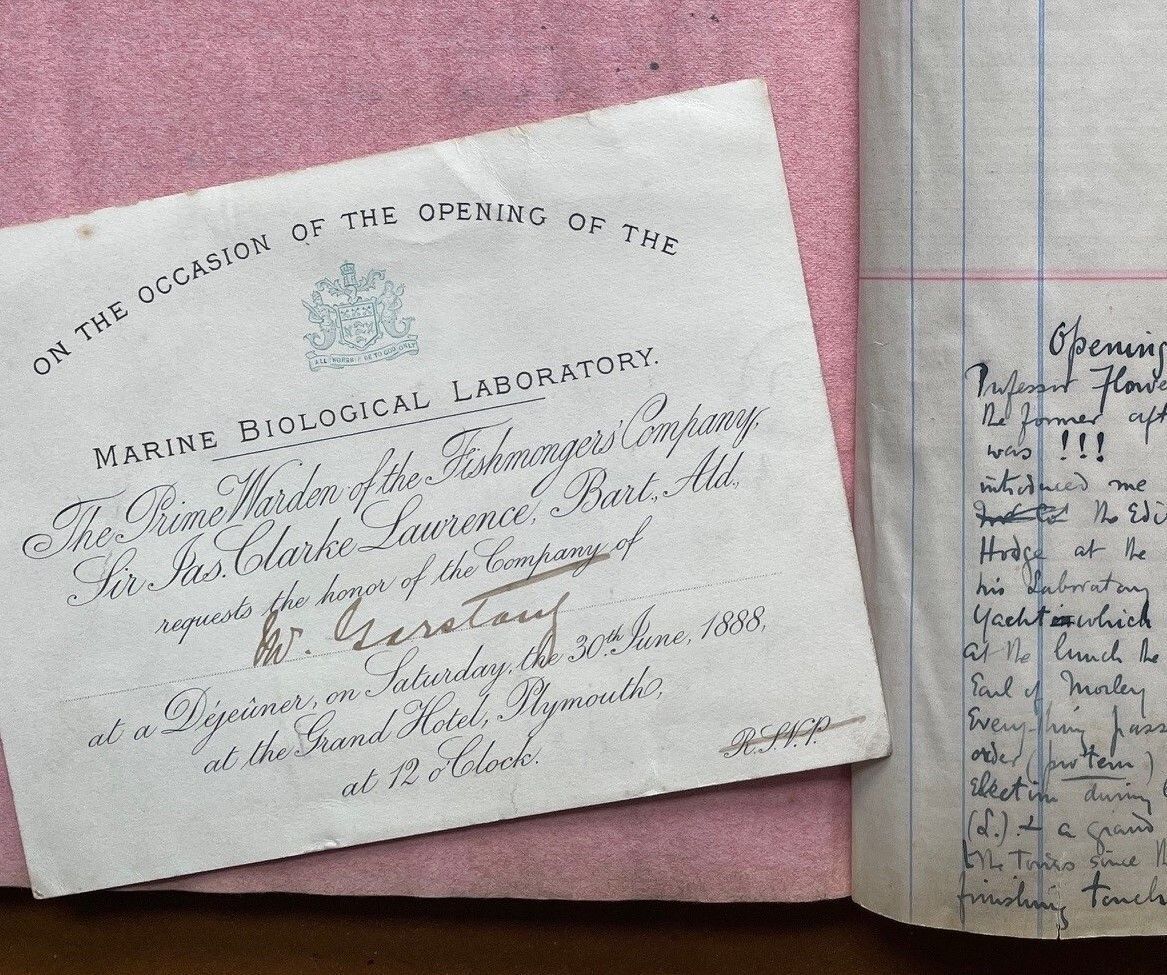 ON THE OCCASION OF THE OPENING OF THE
ALL WORSHIP BE TO GOD ONLY
MARINE BIOLOGICAL LABORATORY.
The Prime Warden of the Fishmongers' Company,
Sir Jas. Clarke Lawrence, Bart., Ald.,
requests the honor of the Company of
W. Garstang
at a Déjeûner, on Saturday, the 30th. June, 1888,
at the Grand Hotel, Plymouth,
at 12 o'Clock.
R.S.V.P.
Opening
Professor Flowe
the former aft
was !!!
introduced me
the Edi
Hodge at the
his Laboratory
Yacht which
at the lunch the
Earl of Morley
Everything pass
order (pro tem)
Election during
(L.) & a grand
the Tories since th
finishing touch